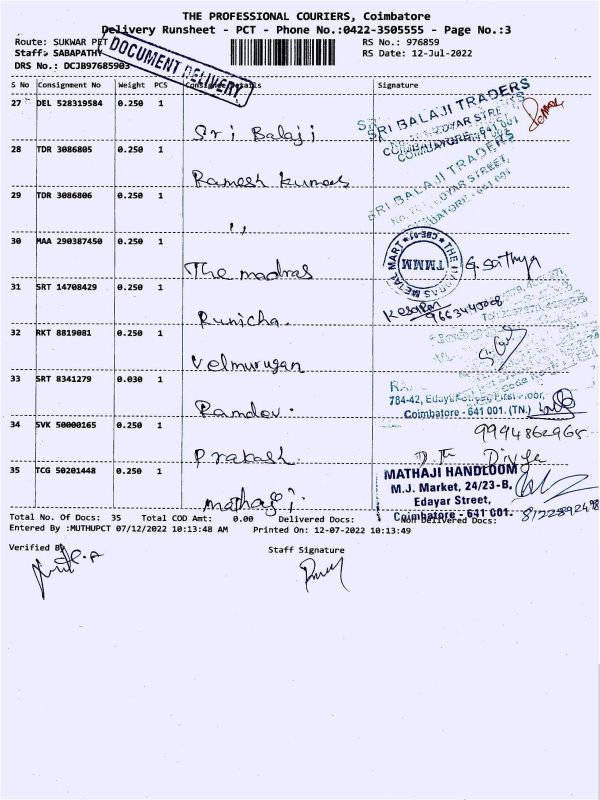 THE PROFESSIONAL COURIERS, Coimbatore
Delivery Runsheet - PCT - Phone No.:0422-3505555 - Page No.:3
Route: SUKWAR PET
RS No.: 976859
Staff: SABAPATHY
RS Date: 12-Jul-2022
DRS No.: DCJB97685903
DOCUMENT DELIVERY
S No Consignment No Weight PCS Consignee Details Signature
27 DEL 528319584 0.250 1
Sri Balaji
SRI BALAJI TRADERS
COIMBATORE - 641 001
28 TDR 3086805 0.250 1
Ramesh kumar
SRI BALAJI TRADERS
29 TDR 3086806 0.250 1
,,
30 MAA 290387450 0.250 1
The madras
TMMM
G. Sathya
31 SRT 14708429 0.250 1
Runicha.
Kesaran
9663440008
32 RKT 8819081 0.250 1
Velmurugan
33 SRT 8341279 0.030 1
Ramdev.
784-42, Edayar Street, First Floor,
Coimbatore - 641 001. (TN.)
34 SVK 50000165 0.250 1
Prakash
9994862965
Divya
35 TCG 50201448 0.250 1
mathaji
MATHAJI HANDLOOM
M.J. Market, 24/23-B,
Edayar Street,
Coimbatore - 641 001.
8122892498
Total No. Of Docs: 35 Total COD Amt: 0.00 Delivered Docs: Non Delivered Docs:
Entered By :MUTHUPCT 07/12/2022 10:13:48 AM Printed On: 12-07-2022 10:13:49
Verified By
Staff Signature